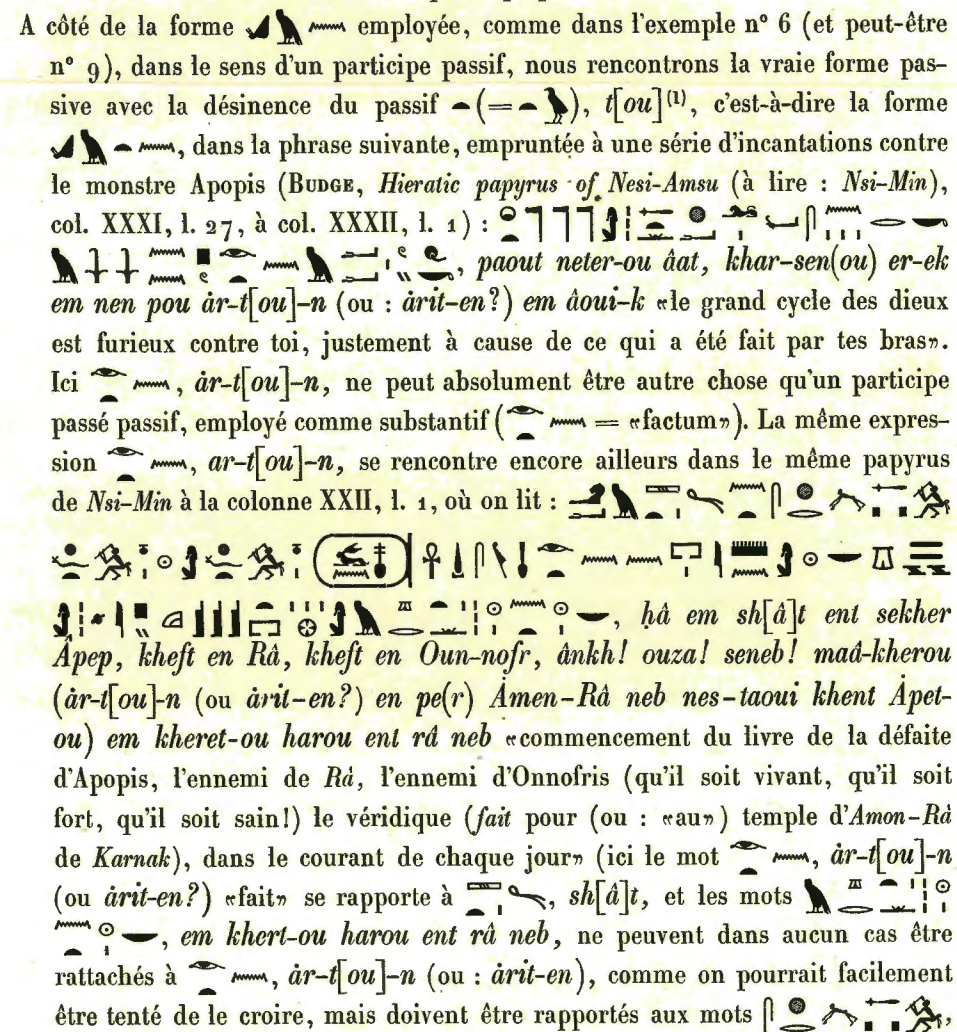 A côté de la forme employée, comme dans l'exemple n° 6 (et peut-être
n° 9), dans le sens d'un participe passif, nous rencontrons la vraie forme pas-
sive avec la désinence du passif (= ), t[ou](1), c'est-à-dire la forme
, dans la phrase suivante, empruntée à une série d'incantations contre
le monstre Apopis (BUDGE, Hieratic papyrus of Nesi-Amsu (à lire : Nsi-Min),
col. XXXI, l. 27, à col. XXXII, l. 1) :
, paout neter-ou âat, khar-sen(ou) er-ek
em nen pou àr-t[ou]-n (ou : àrit-en?) em âoui-k «le grand cycle des dieux
est furieux contre toi, justement à cause de ce qui a été fait par tes bras».
Ici , àr-t[ou]-n, ne peut absolument être autre chose qu'un participe
passé passif, employé comme substantif ( = «factum»). La même expres-
sion , ar-t[ou]-n, se rencontre encore ailleurs dans le même papyrus
de Nsi-Min à la colonne XXII, l. 1, où on lit :
, ḥâ em sh[â]t ent sekher
Àpep, kheft en Râ, kheft en Oun-nofr, ânkh! ouza! seneb! maâ-kherou
(àr-t[ou]-n (ou àrit-en?) en pe(r) Àmen-Râ neb nes-taoui khent Àpet-
ou) em kheret-ou harou ent râ neb «commencement du livre de la défaite
d'Apopis, l'ennemi de Râ, l'ennemi d'Onnofris (qu'il soit vivant, qu'il soit
fort, qu'il soit sain!) le véridique (fait pour (ou : «au») temple d'Amon-Râ
de Karnak), dans le courant de chaque jour» (ici le mot , àr-t[ou]-n
(ou àrit-en?) «fait» se rapporte à , sh[â]t, et les mots
, em khert-ou harou ent râ neb, ne peuvent dans aucun cas être
rattachés à , àr-t[ou]-n (ou : àrit-en), comme on pourrait facilement
être tenté de le croire, mais doivent être rapportés aux mots ,